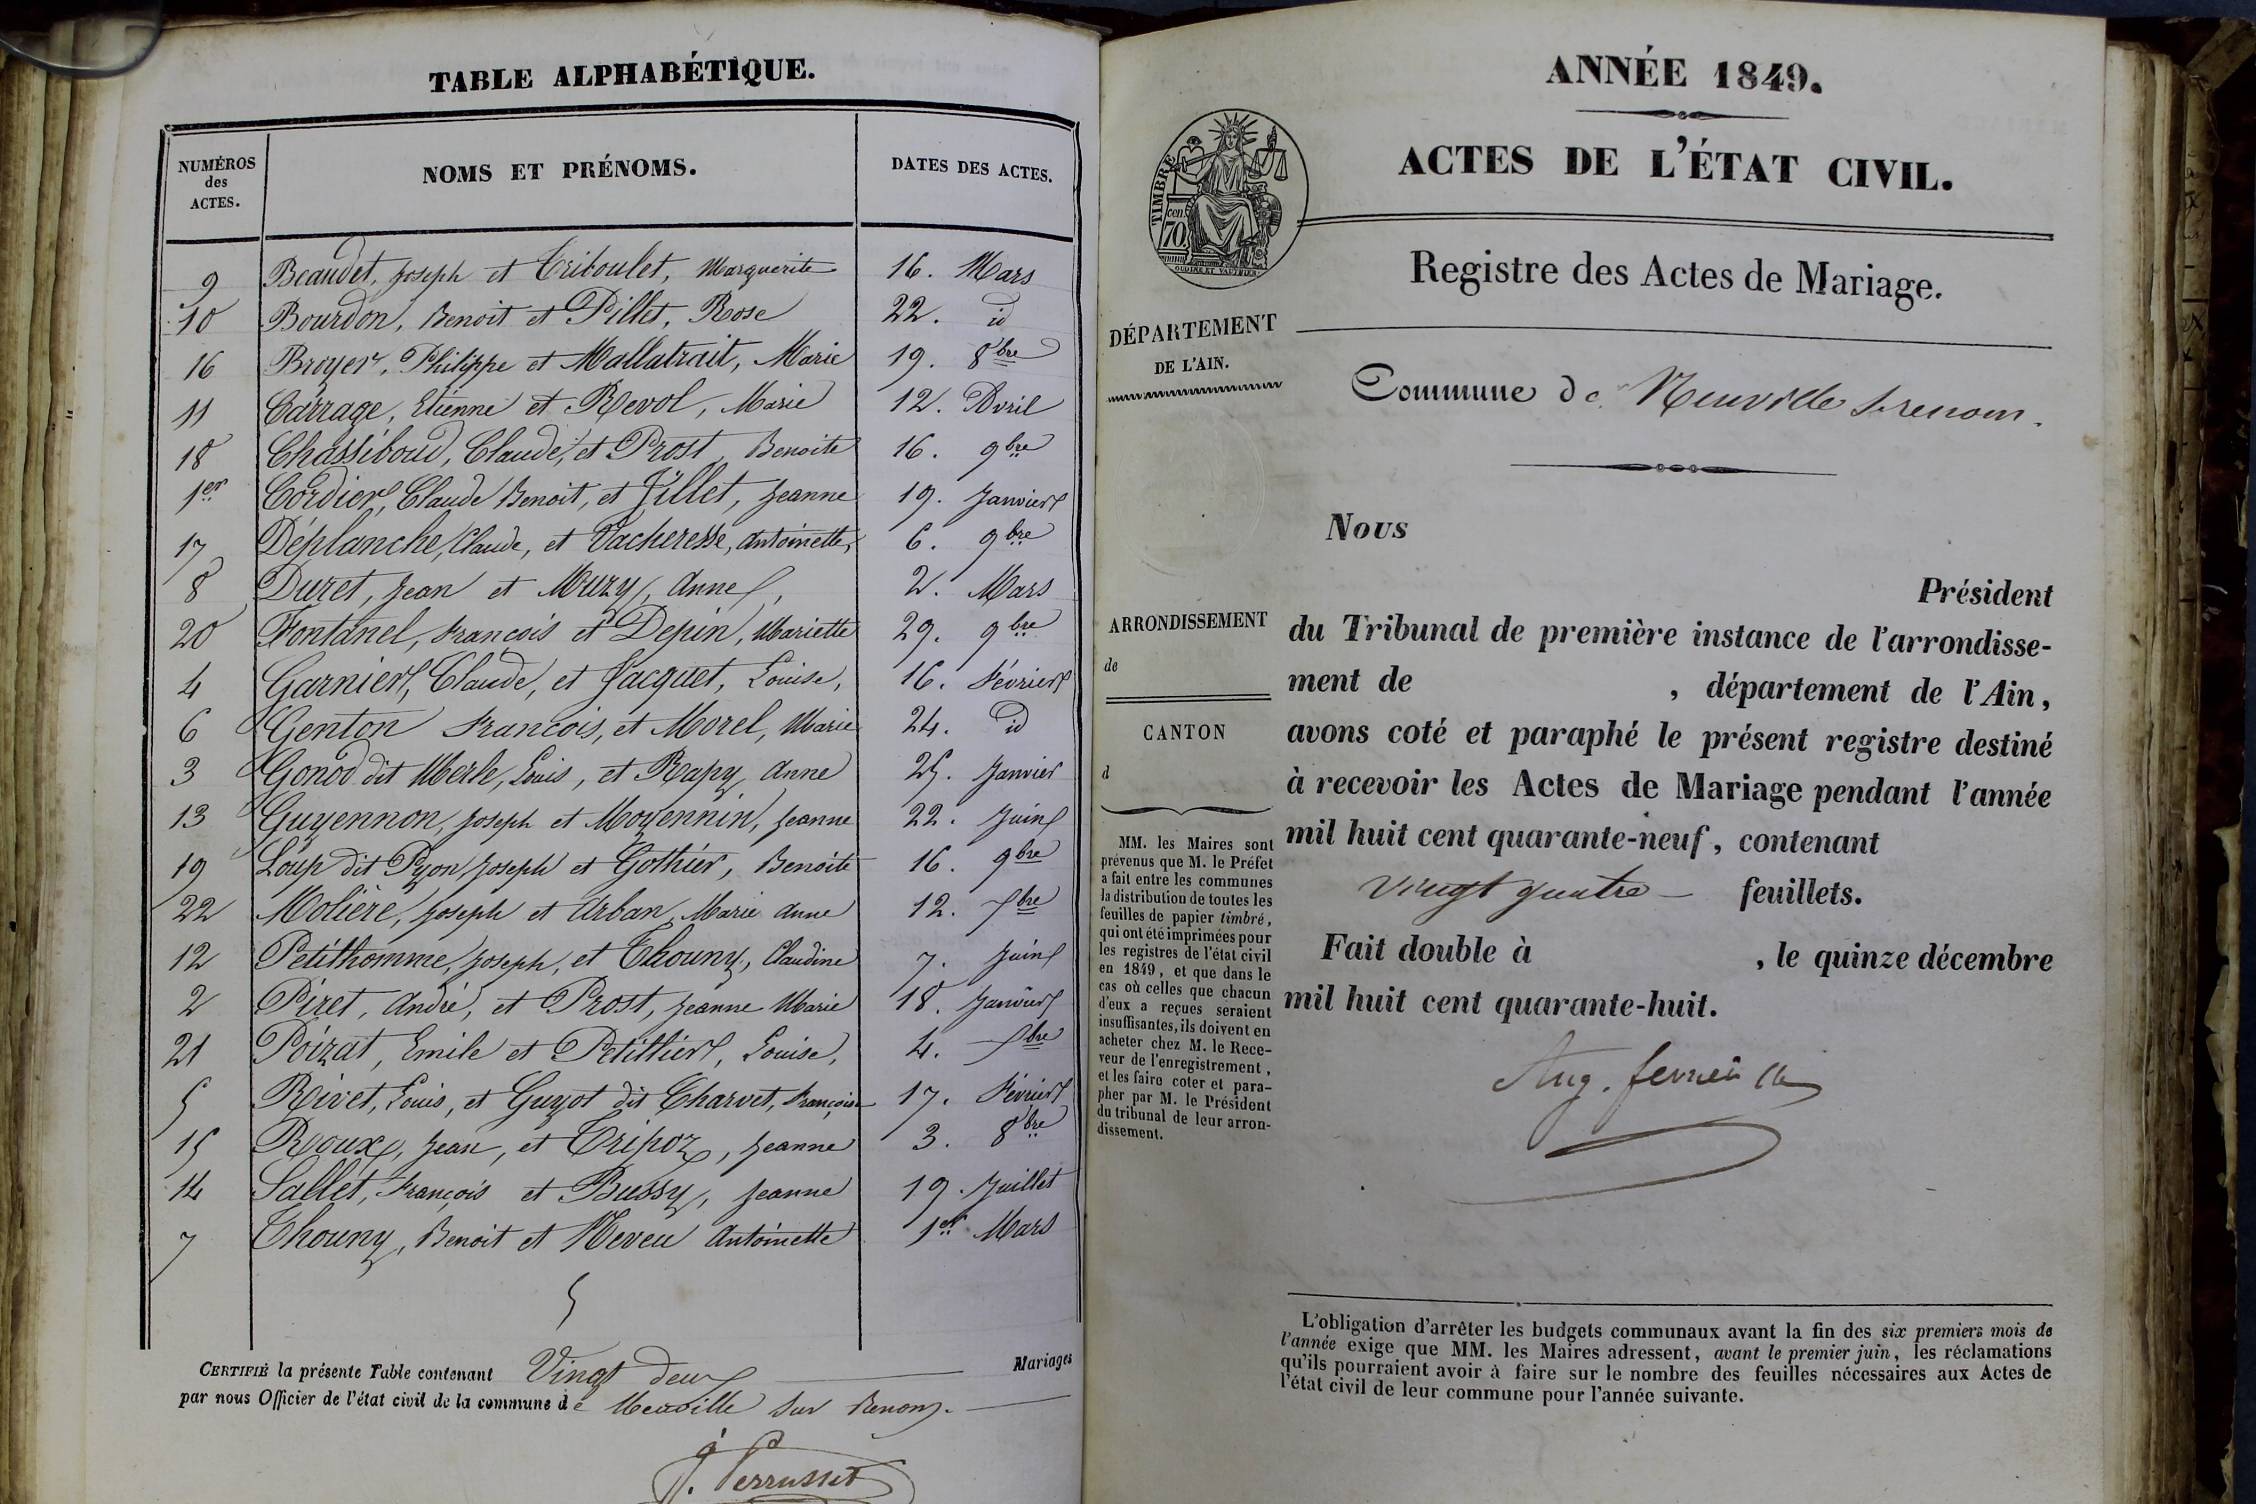 TABLE ALPHABÉTIQUE.
NUMÉROS des ACTES. NOMS ET PRÉNOMS. DATES DES ACTES.
9 Beaudet, Joseph et Triboulet, Marguerite 16. Mars
10 Bourdon, Benoit et Pillet, Rose 22. id
16 Broyer, Philippe et Mallatrait, Marie 19. 8bre
11 Carrage, Etienne et Revol, Marie 12. Avril
18 Chassiboud, Claude, et Prost Benoite 16. 9bre
1er Cordier, Claude Benoit, et Jillet, Jeanne 19. Janvier
17 Déplanche, Claude, et Vacheresse, Antoinette, 6. 9bre
8 Duret, Jean et Muzy, Anne, 2. Mars
20 Fontanel, François et Depin, Mariette 29. 9bre
4 Garnier, Claude, et Jacquet, Louise, 16. Février
6 Genton François, et Morel, Marie 24. id
3 Gonod dit Merle, Louis, et Rapy, Anne 25. Janvier
13 Guyennon, Joseph et Moyennin, Jeanne 22. Juin
19 Loup dit Pyon, Joseph et Gothier, Benoite 16. 9bre
22 Molière, Joseph et Arban, Marie Anne 12. Xbre
12 Petithomme, Joseph, et Thouny, Claudine 7. Juin
2 Piret, André, et Prost, Jeanne Marie 18. Janvier
21 Poizat, Emile et Petittier, Louise, 4. Xbre
5 Rivet, Louis, et Guyot dit Charvet, Françoise 17. Février
15 Rooux, Jean, et Tripoz, Jeanne 3. 8bre
14 Sallet, François et Bussy, Jeanne 19. Juillet
7 Thouny, Benoit et Neveu Antoinette 1er Mars
CERTIFIÉ la présente Table contenant Vingt deux Mariages
par nous Officier de l'état civil de la commune de Neuville sur Renom.
J. Perrusset
ANNÉE 1849.
ACTES DE L'ÉTAT CIVIL.
TIMBRE
cen.
70
OUDINE ET VAUTHIER
Registre des Actes de Mariage.
DÉPARTEMENT
DE L'AIN.
Commune de Neuville s. renom.
Nous
Président
du Tribunal de première instance de l'arrondisse-
ment de , département de l'Ain,
avons coté et paraphé le présent registre destiné
à recevoir les Actes de Mariage pendant l'année
mil huit cent quarante-neuf, contenant
vingt quatre feuillets.
Fait double à , le quinze décembre
mil huit cent quarante-huit.
Aug.
ARRONDISSEMENT
de
CANTON
d
MM. les Maires sont
prévenus que M. le Préfet
a fait entre les communes
la distribution de toutes les
feuilles de papier timbré,
qui ont été imprimées pour
les registres de l'état civil
en 1849, et que dans le
cas où celles que chacun
d'eux a reçues seraient
insuffisantes, ils doivent en
acheter chez M. le Rece-
veur de l'enregistrement,
et les faire coter et para-
pher par M. le Président
du tribunal de leur arron-
dissement.
L'obligation d'arrêter les budgets communaux avant la fin des six premiers mois de
l'année exige que MM. les Maires adressent, avant le premier juin, les réclamations
qu'ils pourraient avoir à faire sur le nombre des feuilles nécessaires aux Actes de
l'état civil de leur commune pour l'année suivante.